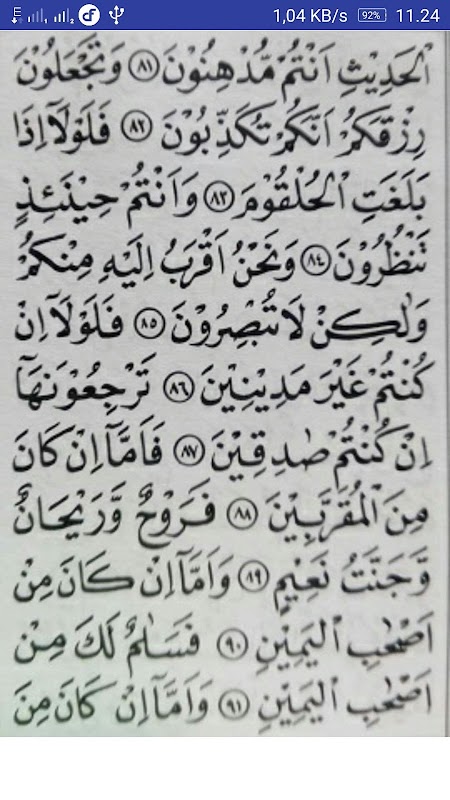 1,04 KB/s 92% 11.24
الْحَدِيْثِ اَنْتُمْ مُّدْهِنُوْنَ ﴿٨١﴾ وَتَجْعَلُوْنَ
رِزْقَكُمْ اَنَّكُمْ تُكَذِّبُوْنَ ﴿٨٢﴾ فَلَوْلَآ اِذَا
بَلَغَتِ الْحُلْقُوْمَ ﴿٨٣﴾ وَاَنْتُمْ حِيْنَئِذٍ
تَنْظُرُوْنَ ﴿٨٤﴾ وَنَحْنُ اَقْرَبُ اِلَيْهِ مِنْكُمْ
وَلٰكِنْ لَا تُبْصِرُوْنَ ﴿٨٥﴾ فَلَوْلَآ اِنْ
كُنْتُمْ غَيْرَ مَدِيْنِيْنَ ﴿٨٦﴾ تَرْجِعُوْنَهَآ
اِنْ كُنْتُمْ صٰدِقِيْنَ ﴿٨٧﴾ فَاَمَّآ اِنْ كَانَ
مِنَ الْمُقَرَّبِيْنَ ﴿٨٨﴾ فَرَوْحٌ وَّرَيْحَانٌ
وَّجَنَّتُ نَعِيْمٍ ﴿٨٩﴾ وَاَمَّآ اِنْ كَانَ مِنْ
اَصْحٰبِ الْيَمِيْنِ ﴿٩٠﴾ فَسَلٰمٌ لَكَ مِنْ
اَصْحٰبِ الْيَمِيْنِ ﴿٩١﴾ وَاَمَّآ اِنْ كَانَ مِنَ